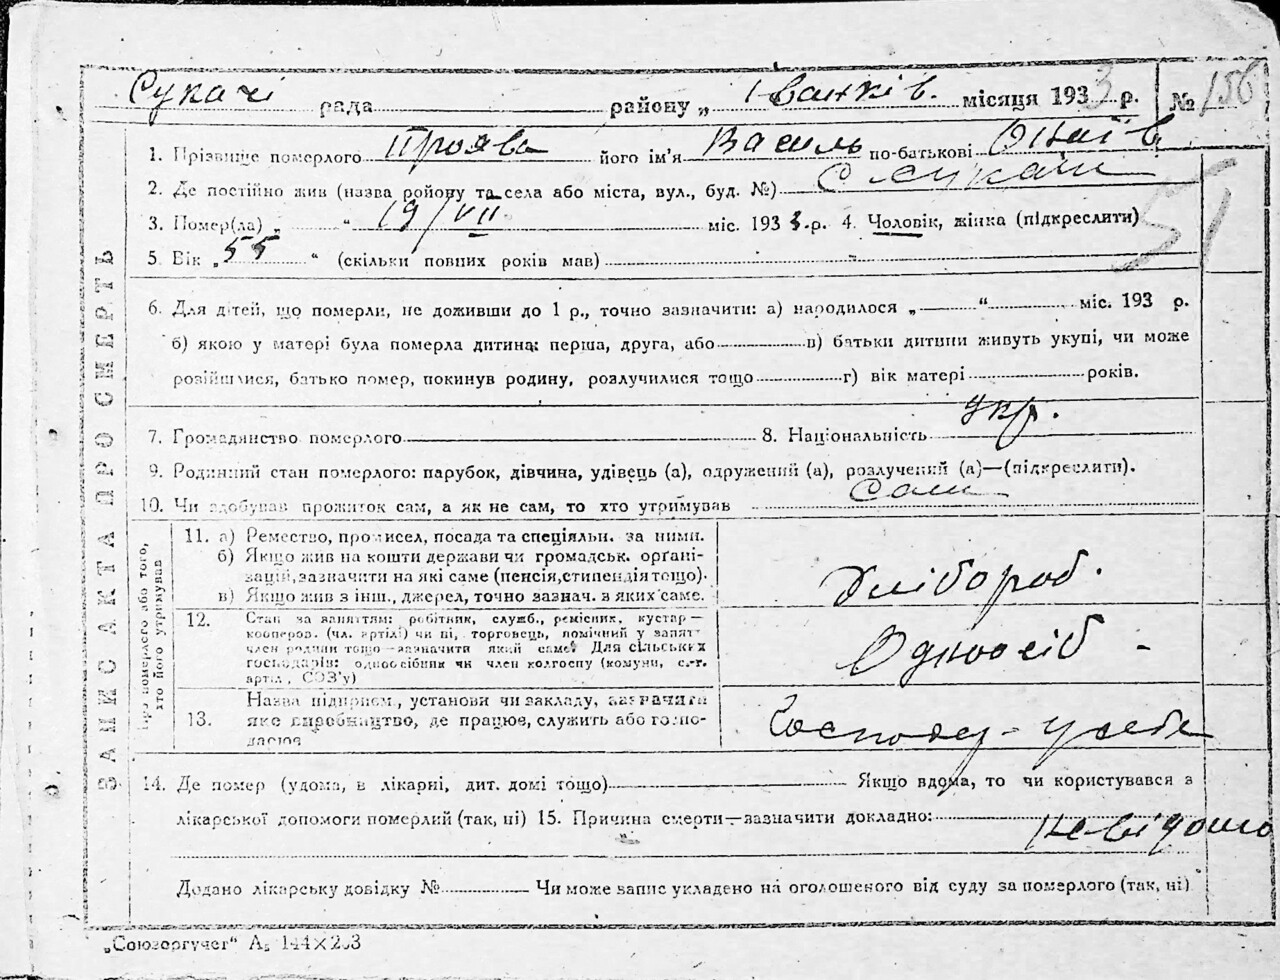 Сукачі рада району „ Іванків. місяця 1933 р. № 156
1. Прізвище померлого Проява його ім'я Василь по-батькові
2. Де постійно жив (назва району та села або міста, вул., буд. №) с Сукачі
3. Помер(ла) „ “ 19/VII міс. 1933 р. 4. Чоловік, жінка (підкреслити)
51
5. Вік „55 “ (скільки повних років мав)
6. Для дітей, що померли, не доживши до 1 р., точно зазначити: а) народилося „ “ міс. 193 р.
б) якою у матері була померла дитина: перша, друга, або в) батьки дитини живуть укупі, чи може
розійшлися, батько помер, покинув родину, розлучилися тощо г) вік матері років.
7. Громадянство померлого 8. Національність укр.
9. Родинний стан померлого: парубок, дівчина, удівець (а), одружений (а), розлучений (а)—(підкреслити).
10. Чи здобував прожиток сам, а як не сам, то хто утримував Сам
ЗАПИС АКТА ПРО СМЕРТЬ
Про померлого або того,
хто його утримував
11. а) Ремество, промисел, посада та спеціяльн. за ними.
б) Якщо жив на кошти держави чи громадськ. орґані-
зацій, зазначити на які саме (пенсія, стипендія тощо).
в) Якщо жив з інш., джерел, точно зазнач. з яких саме.
Хлібороб.
12. Стан за заняттям: робітник, служб., ремісник, кустар—
кооперов. (чл. артілі) чи ні, торговець, помічний у занятт
член родини тощо—зазначити який саме? Для сільських
господарів: одноосібник чи член колгоспу (комуни, с.-г.
артіл, СОЗ'у)
Одноосіб -
13. Назва підприєм., установи чи закладу, зазначити
яке виробництво, де працює, служить або госпо-
дарює
Господар - у себе
14. Де помер (удома, в лікарні, дит. домі тощо) Якщо вдома, то чи користувався з
лікарської допомоги померлий (так, ні) 15. Причина смерти—зазначити докладно:
невідомо
Додано лікарську довідку № Чи може запис укладено на оголошеного від суду за померлого (так, ні)
„Союзоргучет“ А5 144×203